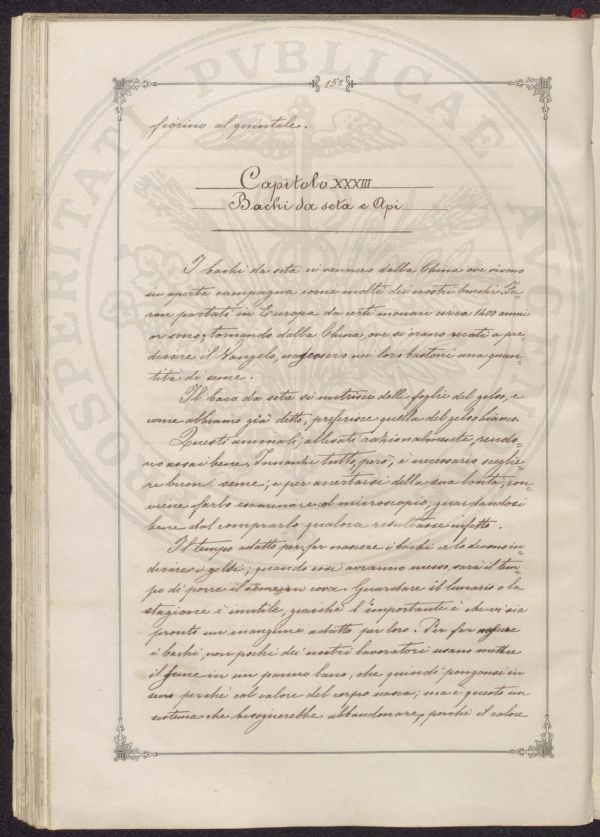 152
fiorino al quintale.
Capitolo XXXIII
Bachi da seta e Api
I bachi da seta ci vennero dalla China ove vivono
in aperta campagna come molti dei nostri bruchi. Fu=
ron portati in Europa da certi monaci circa 1400 anni
or sono; tornando dalla China, ove si erano recati a pre=
dicare il Vangelo, nascosero nei loro bastoni una quan=
tità di seme.
Il baco da seta si nutrisce delle foglie del gelso, e
come abbiamo già detto, preferisce quella del gelso bianco.
Questi animali, allevati razionalmente, rendo=
no assai bene. Innanzi tutto, però, è necessario sceglie=
re buon seme; e per accertarsi della sua bontà, con=
viene farlo esaminare al microscopio, guardandosi
bene dal comprarlo qualora resultasse infetto.
Il tempo adatto per far nascere i bachi ce lo devono in=
dicare i gelsi; quando essi avranno messo, sarà il tem=
po di porre il seme in cova. Guardare il lunario o la
stagione è inutile, giacchè l'importante è che vi sia
pronto un mangime adatto per loro. Per far nascere
i bachi, non pochi dei nostri lavoratori usano mettere
il seme in un panno lano, che quindi pongonsi in
seno perchè col calore del corpo nasca; ma è questo un
sistema che bisognerebbe abbandonare, perchè il calore
PROSPERITATI PVBLICAE AVGENDAE